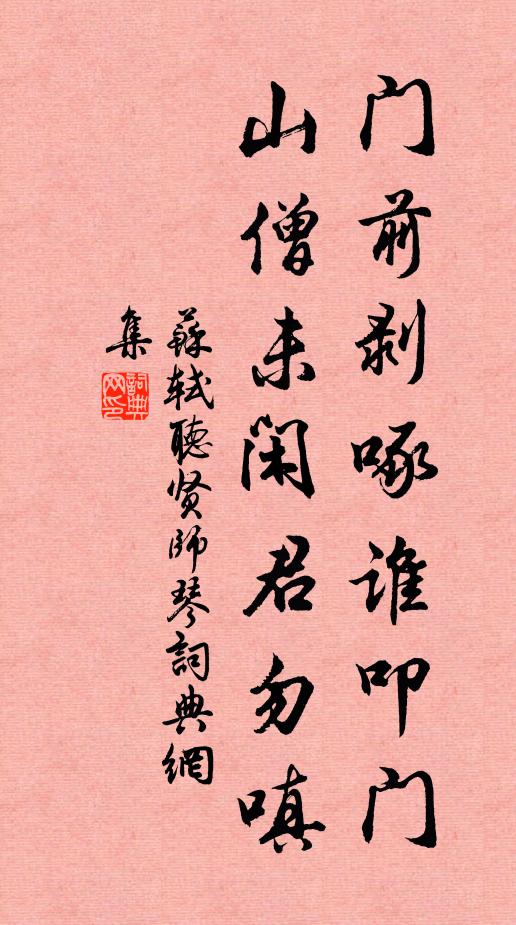 门前剥啄谁叩门
山僧未闲君勿嗔
蘇轼聴贤師琴詞典網
集
詞典
网印